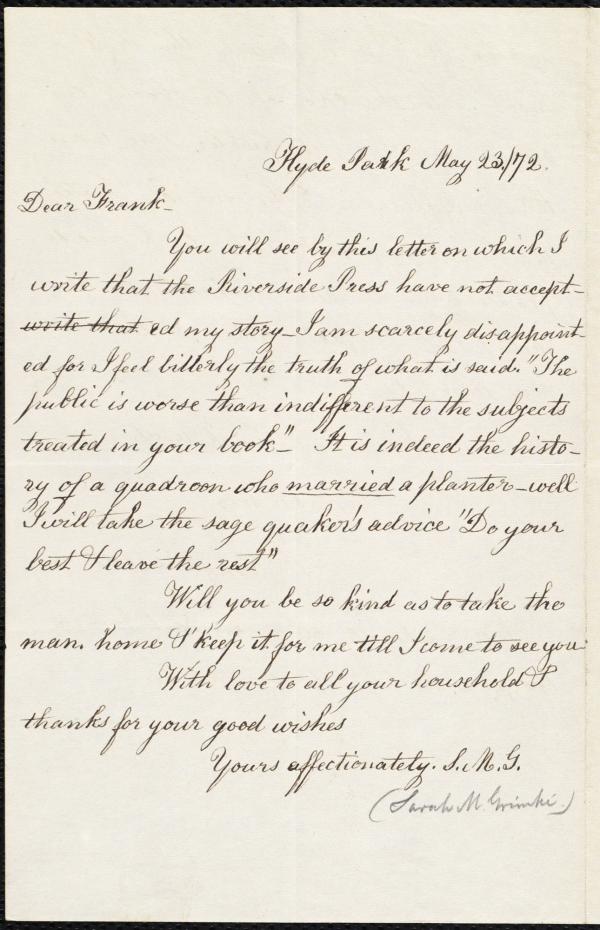 Hyde Park May 23/72.
Dear Frank–
You will see by this letter on which I
write that the Riverside Press have not accept–
write that ed my story– I am scarcely disappoint–
ed for I feel bitterly the truth of what is said. "The
public is worse than indifferent to the subjects
treated in your book"– It is indeed the histo–
ry of a quadroon who married a planter– well
I will take the sage quaker's advice "Do your
best & leave the rest"
Will you be so kind as to take the
man. home & keep it for me till I come to see you
With love to all your household &
thanks for your good wishes
Yours affectionately. S. M. G.
(Sarah M. Grimké.)